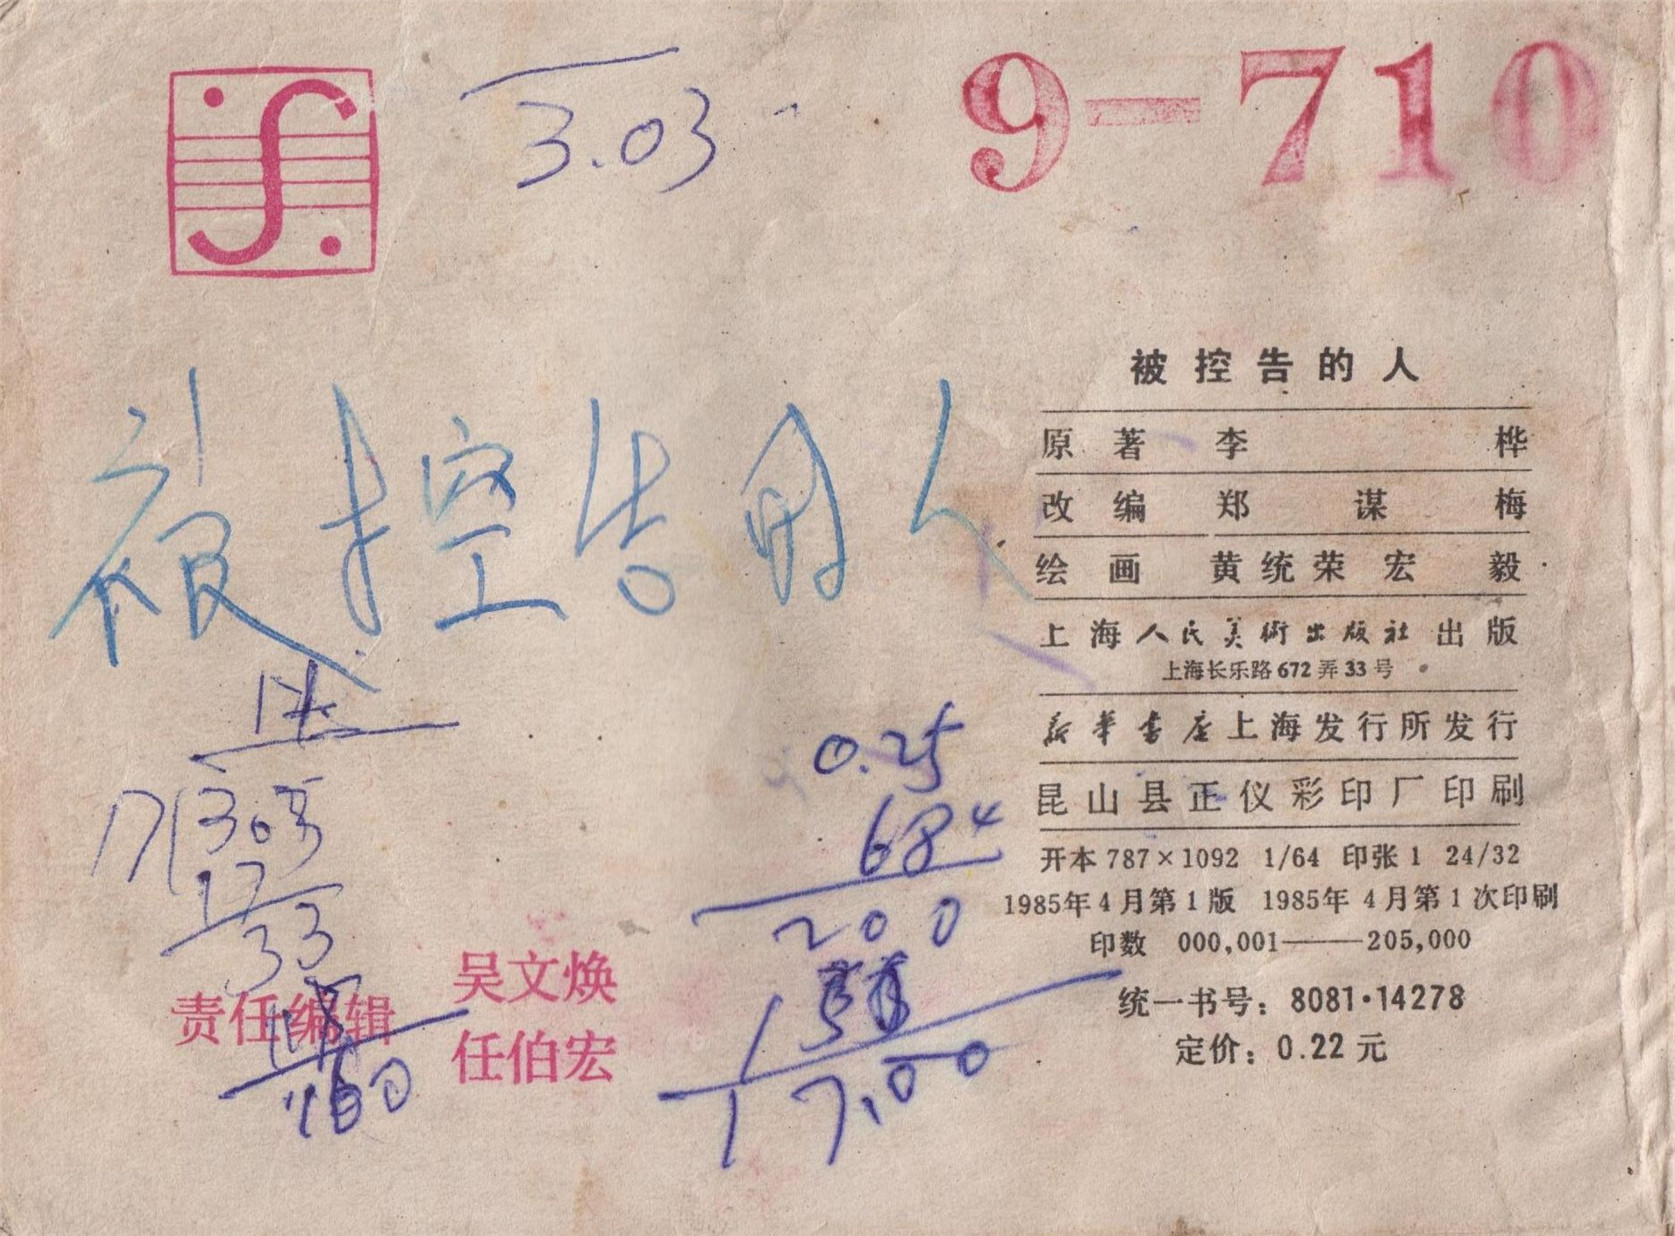 3.03
9-710
被控告的人
被控告的人
原著 李桦
改编 郑谋梅
绘画 黄统荣 宏毅
上海人民美術出版社出版
上海长乐路672弄33号
新華書店上海发行所发行
昆山县正仪彩印厂印刷
开本 787×1092 1/64 印张 1 24/32
1985年4月第1版 1985年4月第1次印刷
印数 000,001——205,000
统一书号：8081·14278
定价：0.22元
17
33
0.25
684
200
17.00
责任编辑 吴文焕
任伯宏